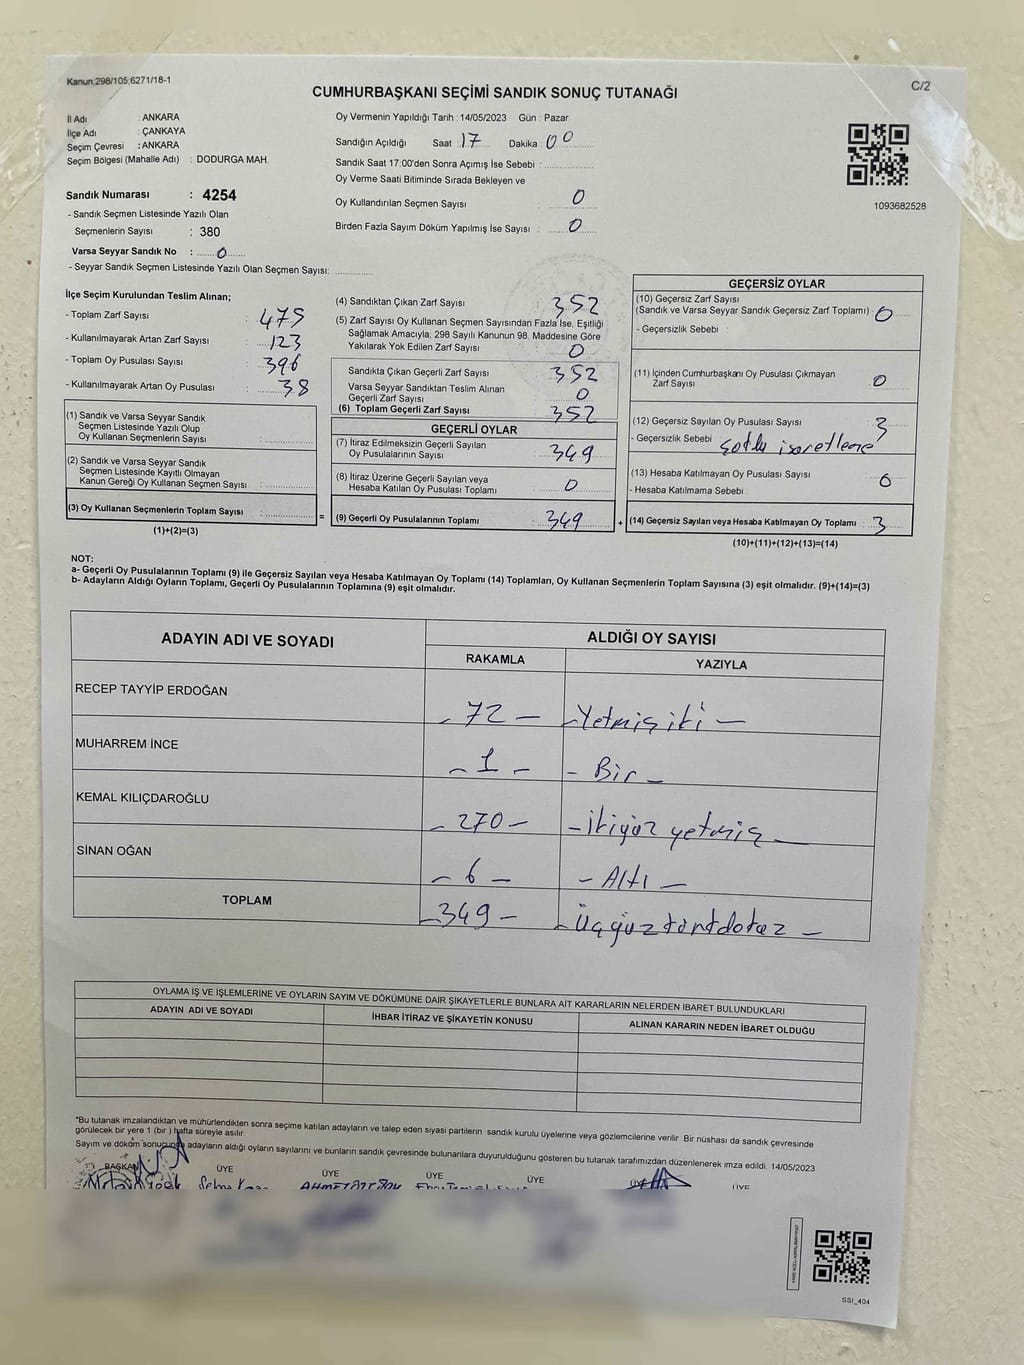 Kanun:298/105;6271/18-1
C/2
CUMHURBAŞKANI SEÇİMİ SANDIK SONUÇ TUTANAĞI
İl Adı : ANKARA
İlçe Adı : ÇANKAYA
Seçim Çevresi : ANKARA
Seçim Bölgesi (Mahalle Adı) : DODURGA MAH.
Sandık Numarası : 4254
- Sandık Seçmen Listesinde Yazılı Olan
Seçmenlerin Sayısı : 380
Varsa Seyyar Sandık No : 0
- Seyyar Sandık Seçmen Listesinde Yazılı Olan Seçmen Sayısı:
Oy Vermenin Yapıldığı Tarih : 14/05/2023 Gün : Pazar
Sandığın Açıldığı Saat 17 Dakika : 00
Sandık Saat 17:00'den Sonra Açımış İse Sebebi :
Oy Verme Saati Bitiminde Sırada Bekleyen ve
Oy Kullandırılan Seçmen Sayısı : 0
Birden Fazla Sayım Döküm Yapılmış İse Sayısı : 0
1093682528
İlçe Seçim Kurulundan Teslim Alınan;
- Toplam Zarf Sayısı : 475
- Kullanılmayarak Artan Zarf Sayısı : 123
- Toplam Oy Pusulası Sayısı : 396
- Kullanılmayarak Artan Oy Pusulası : 38
(1) Sandık ve Varsa Seyyar Sandık
Seçmen Listesinde Yazılı Olup
Oy Kullanan Seçmenlerin Sayısı :
(2) Sandık ve Varsa Seyyar Sandık
Seçmen Listesinde Kayıtlı Olmayan
Kanun Gereği Oy Kullanan Seçmen Sayısı :
(3) Oy Kullanan Seçmenlerin Toplam Sayısı : =
(1)+(2)=(3)
(4) Sandıktan Çıkan Zarf Sayısı : 352
(5) Zarf Sayısı Oy Kullanan Seçmen Sayısından Fazla İse, Eşitliği
Sağlamak Amacıyla; 298 Sayılı Kanunun 98. Maddesine Göre
Yakılarak Yok Edilen Zarf Sayısı : 0
Sandıkta Çıkan Geçerli Zarf Sayısı : 352
Varsa Seyyar Sandıktan Teslim Alınan
Geçerli Zarf Sayısı : 0
(6) Toplam Geçerli Zarf Sayısı : 352
GEÇERLİ OYLAR
(7) İtiraz Edilmeksizin Geçerli Sayılan
Oy Pusulalarının Sayısı : 349
(8) İtiraz Üzerine Geçerli Sayılan veya
Hesaba Katılan Oy Pusulası Toplamı : 0
(9) Geçerli Oy Pusulalarının Toplamı : 349 +
GEÇERSİZ OYLAR
(10) Geçersiz Zarf Sayısı
(Sandık ve Varsa Seyyar Sandık Geçersiz Zarf Toplamı) : 0
- Geçersizlik Sebebi :
(11) İçinden Cumhurbaşkanı Oy Pusulası Çıkmayan
Zarf Sayısı : 0
(12) Geçersiz Sayılan Oy Pusulası Sayısı : 3
- Geçersizlik Sebebi : işaretleme
(13) Hesaba Katılmayan Oy Pusulası Sayısı : 0
- Hesaba Katılmama Sebebi :
(14) Geçersiz Sayılan veya Hesaba Katılmayan Oy Toplamı : 3
(10)+(11)+(12)+(13)=(14)
NOT:
a- Geçerli Oy Pusulalarının Toplamı (9) ile Geçersiz Sayılan veya Hesaba Katılmayan Oy Toplamı (14) Toplamları, Oy Kullanan Seçmenlerin Toplam Sayısına (3) eşit olmalıdır. (9)+(14)=(3)
b- Adayların Aldığı Oyların Toplamı, Geçerli Oy Pusulalarının Toplamına (9) eşit olmalıdır.
ADAYIN ADI VE SOYADI ALDIĞI OY SAYISI
RAKAMLA YAZIYLA
RECEP TAYYİP ERDOĞAN - 72 - - Yetmiş iki -
MUHARREM İNCE - 1 - - Bir -
KEMAL KILIÇDAROĞLU - 270 - - ikiyüz yetmiş -
SİNAN OĞAN - 6 - - Altı -
TOPLAM - 349 -
OYLAMA İŞ VE İŞLEMLERİNE VE OYLARIN SAYIM VE DÖKÜMÜNE DAİR ŞİKAYETLERLE BUNLARA AİT KARARLARIN NELERDEN İBARET BULUNDUKLARI
ADAYIN ADI VE SOYADI İHBAR İTİRAZ VE ŞİKAYETİN KONUSU ALINAN KARARIN NEDEN İBARET OLDUĞU
*Bu tutanak imzalandıktan ve mühürlendikten sonra seçime katılan adayların ve talep eden siyasi partilerin sandık kurulu üyelerine veya gözlemcilerine verilir. Bir nüshası da sandık çevresinde
görülecek bir yere 1 (bir ) hafta süreyle asılır.
Sayım ve döküm sonucunda adayların aldığı oyların sayılarını ve bunların sandık çevresinde bulunanlara duyurulduğunu gösteren bu tutanak tarafımızdan düzenlenerek imza edildi. 14/05/2023
BAŞKAN ÜYE ÜYE ÜYE ÜYE ÜYE ÜYE
SSİ_404